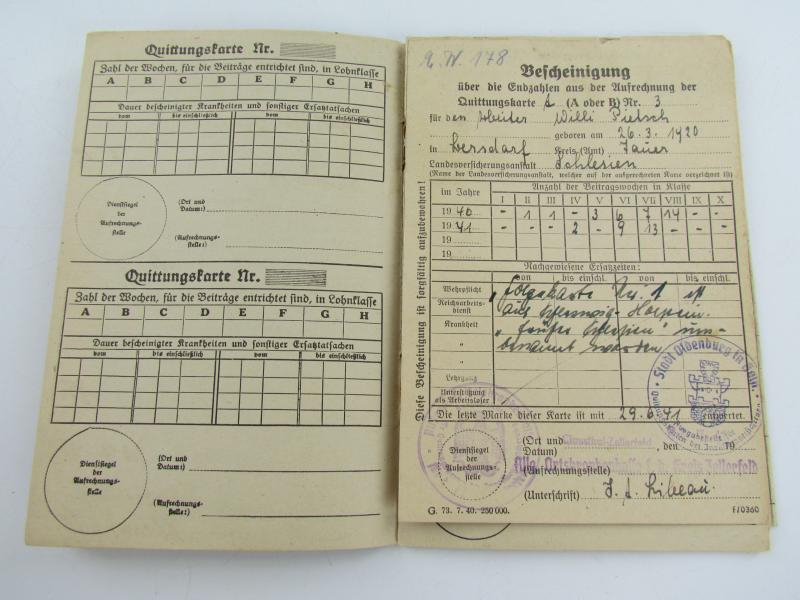 Quittungskarte Nr.
Zahl der Wochen, für die Beiträge entrichtet sind, in Lohnklasse
A B C D E F G H
Dauer bescheinigter Krankheiten und sonstiger Ersatztatsachen
vom bis einschließlich vom bis einschließlich
Dienstsiegel der Aufrechnungs-stelle
(Ort und
Datum:)
(Aufrechnungs-
stelle:)
Quittungskarte Nr.
Zahl der Wochen, für die Beiträge entrichtet sind, in Lohnklasse
A B C D E F G H
Dauer bescheinigter Krankheiten und sonstiger Ersatztatsachen
vom bis einschließlich vom bis einschließlich
Dienstsiegel der Aufrechnungs-stelle
(Ort und
Datum:)
(Aufrechnungs-
stelle:)
178
Bescheinigung
über die Endzahlen aus der Aufrechnung der
Quittungskarte (A oder B) Nr. 3
für den Willi Pietsch
geboren am 26.3.1920
in Kreis (Amt) Jauer
Landesversicherungsanstalt Schlesien
(Name der Landesversicherungsanstalt, welcher auf der aufgerechneten Karte verzeichnet ist)
Diese Bescheinigung ist sorgfältig aufzubewahren!
im Jahre Anzahl der Beitragswochen in Klasse
I II III IV V VI VII VIII IX X
1940 - 1 1 - 3 6 7 14 - -
1941 - - - 2 - 9 13 - - -
19
19
Nachgewiesene Ersatzzeiten:
von bis einschl. von bis einschl.
Wehrpflicht
Reichsarbeits-
dienst
Krankheit
"
"
Lehrgang
Unterstützung
als Arbeitsloser
"Folgekarte Nr. 1 ist
aus Schleswig-Holstein
"früher Schlesien" um-
benannt worden
Stadt Oldenburg in Holst.
Die letzte Marke dieser Karte ist mit 29.6.41 entwertet.
(Ort und
Datum:) Clausthal-Zellerfeld, den 19
Allg. Ortskrankenkasse f. d. Kreis Zellerfeld
(Aufrechnungsstelle)
Dienstsiegel der Aufrechnungs-stelle
(Unterschrift)
G. 73. 7. 40. 250 000.
F/0360